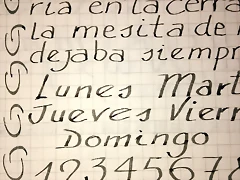 ría en la cerra
la mesita de
dejaba siempr
Lunes Mart
Jueves Vier
Domingo
12345678